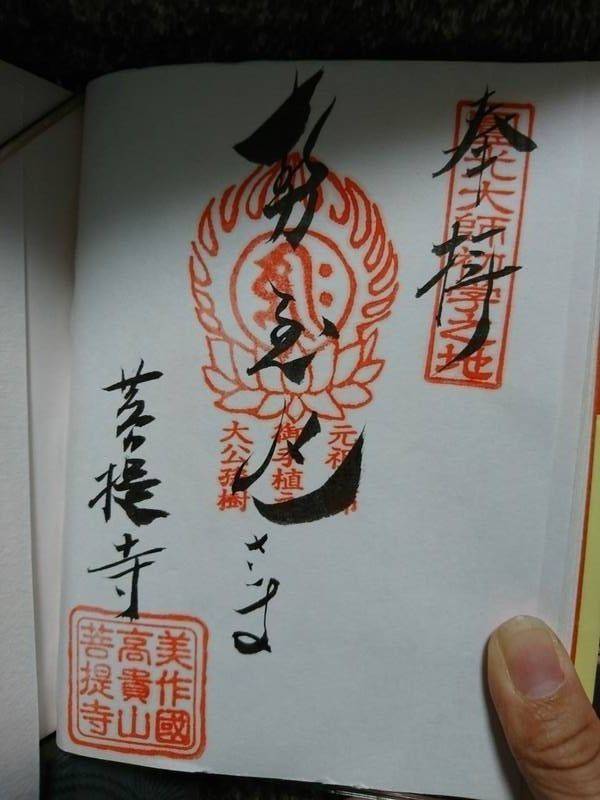 奉拝
光大師初学之地
勢至丸さま
元祖師
御手植之
大公孫樹
菩提寺
美作國
高貴山
菩提寺